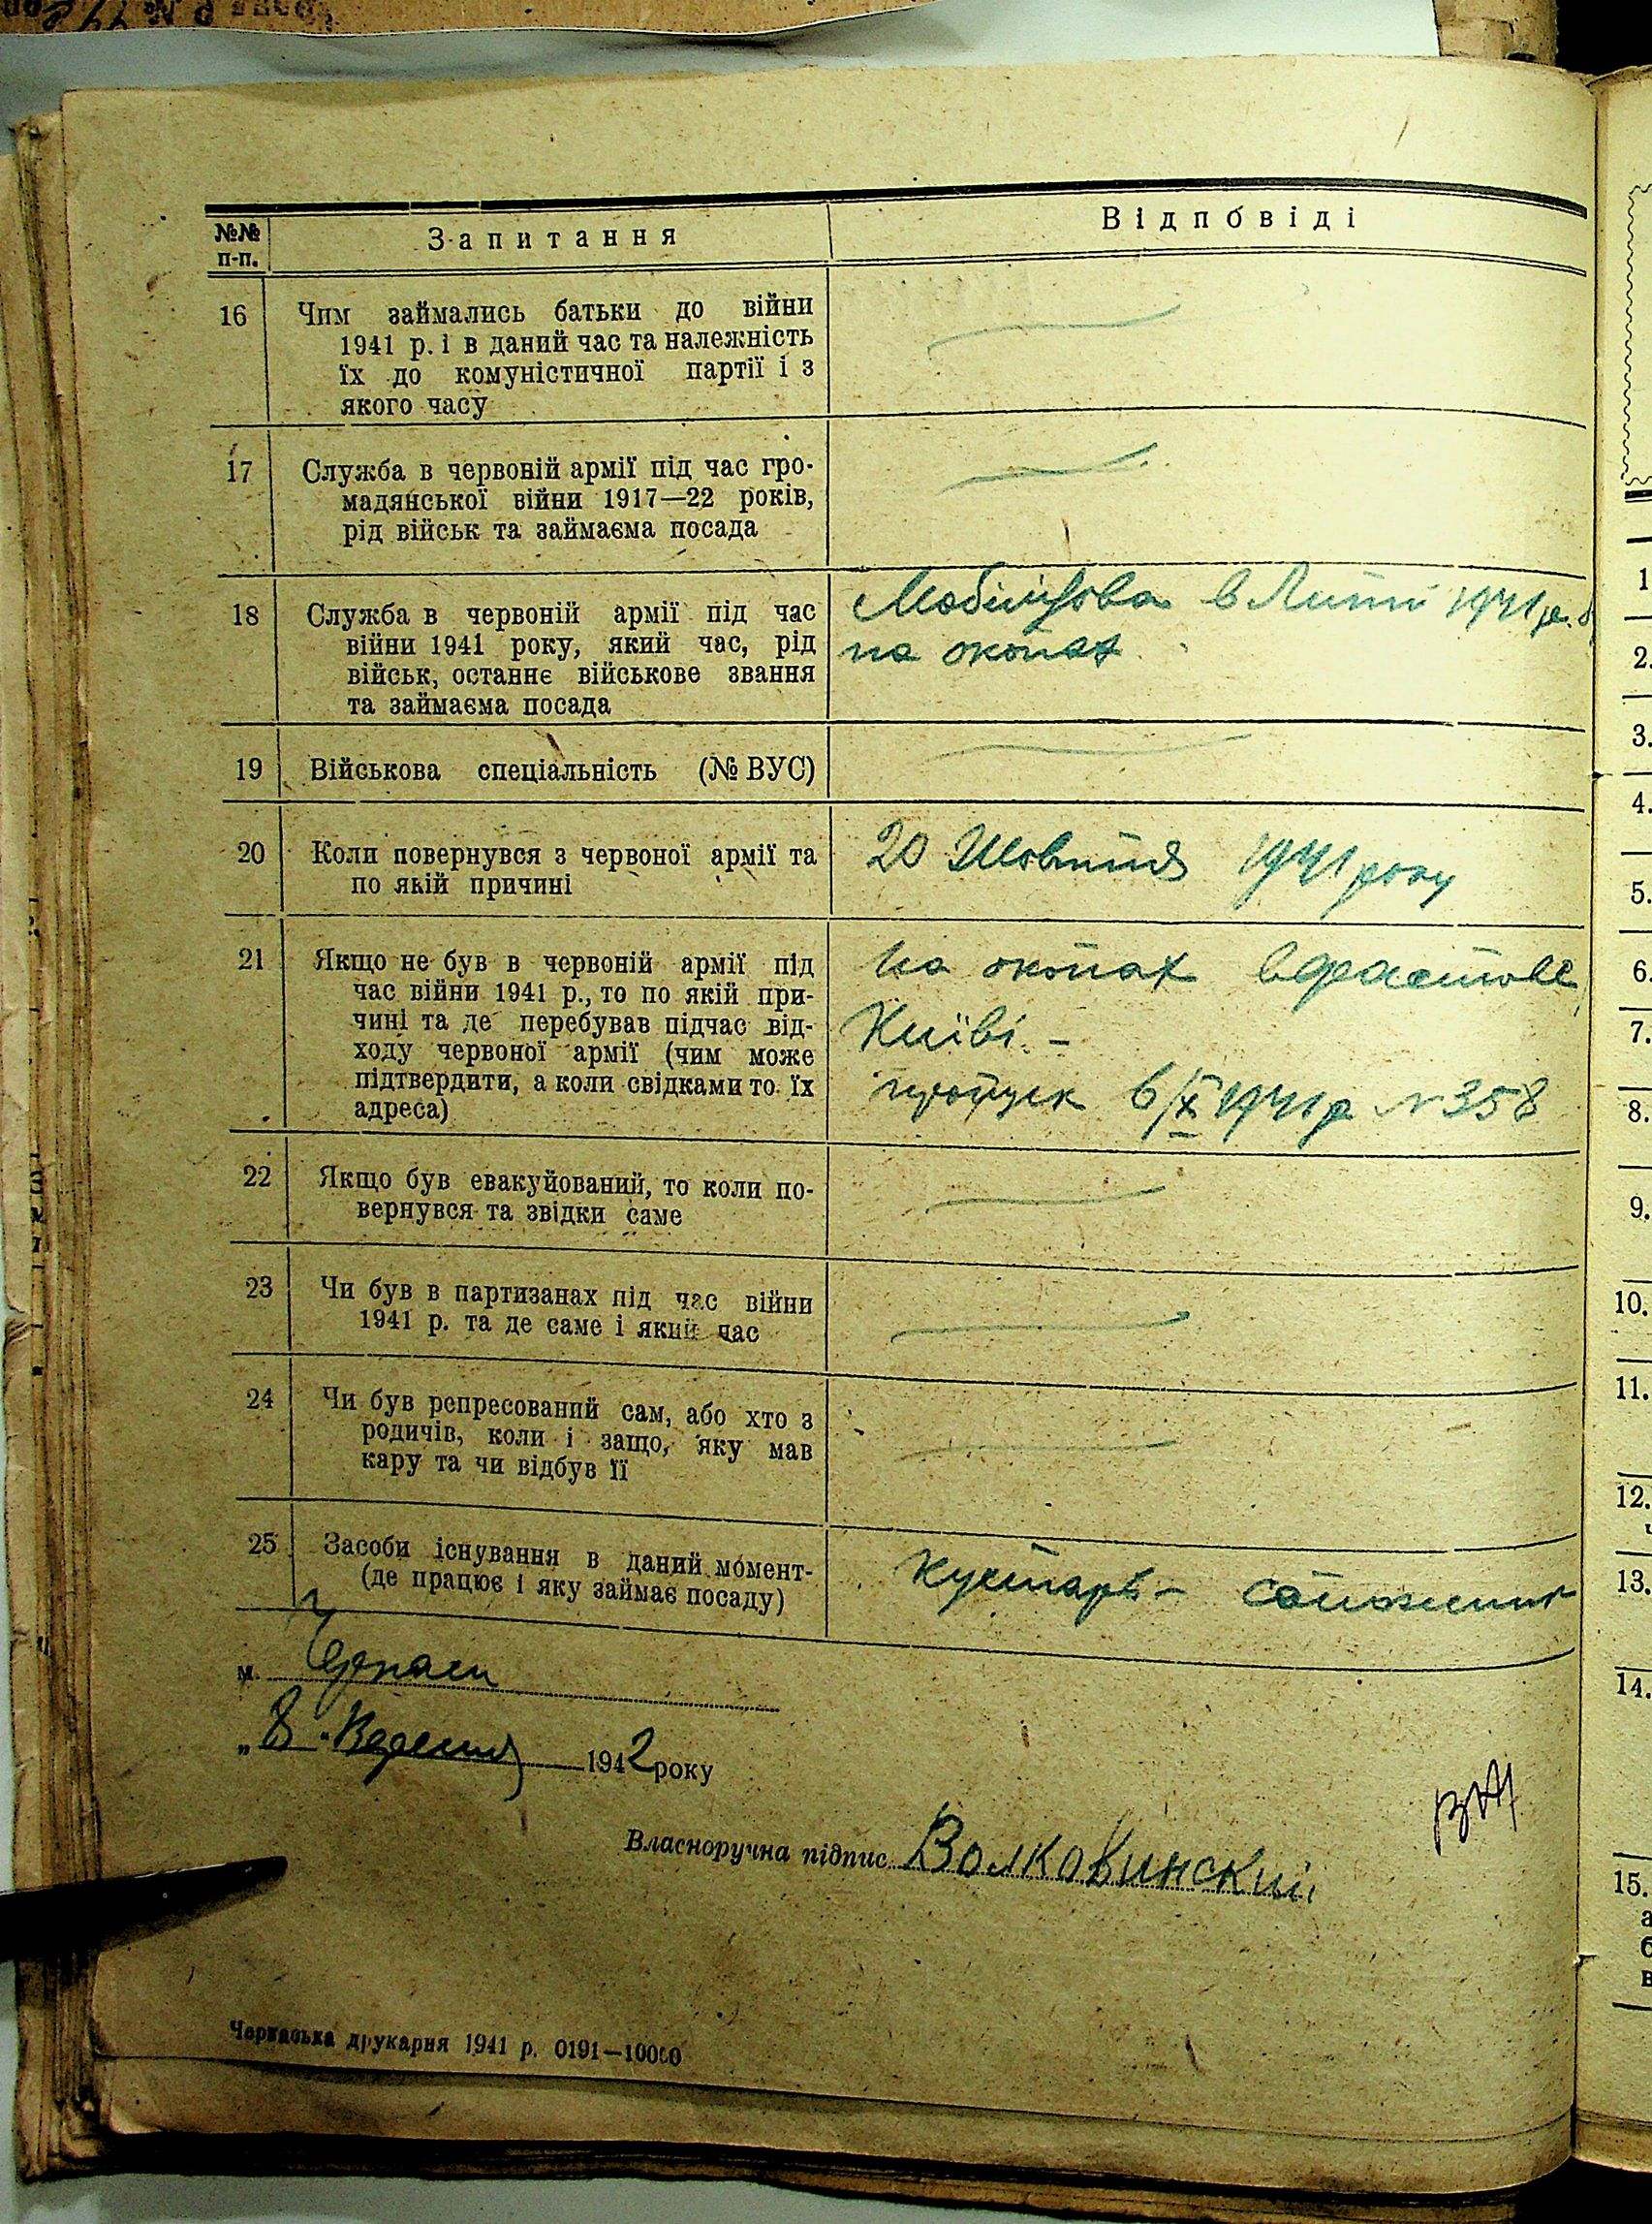 №№ п-п.
Запитання
Відповіді
16
Чим займались батьки до війни
1941 р. і в даний час та належність
їх до комуністичної партії і з
якого часу
17
Служба в червоній армії під час гро-
мадянської війни 1917—22 років,
рід військ та займаєма посада
18
Служба в червоній армії під час
війни 1941 року, який час, рід
військ, останнє військове звання
та займаєма посада
в 1941 р.
на окопах
19
Військова спеціальність (№ ВУС)
20
Коли повернувся з червоної армії та
по якій причині
20 Жовтня 1941 року
21
Якщо не був в червоній армії під
час війни 1941 р., то по якій при-
чині та де перебував підчас від-
ходу червоної армії (чим може
підтвердити, а коли свідками то їх
адреса)
на окопах
Київі —
пропуск 6/X 1941 р № 358
22
Якщо був евакуйований, то коли по-
вернувся та звідки саме
23
Чи був в партизанах під час війни
1941 р. та де саме і який час
24
Чи був репресований сам, або хто з
родичів, коли і защо, яку мав
кару та чи відбув її
25
Засоби існування в даний момент-
(де працює і яку займає посаду)
Кустарь — сапожник
м. Черкаси
„8" Вересня 1942 року
Власноручна підпис Волковинский
Черкаська друкарня 1941 р. 0191—10000
1
2.
3.
4.
5.
6.
7.
8.
9.
10.
11.
12.
13.
14.
15.